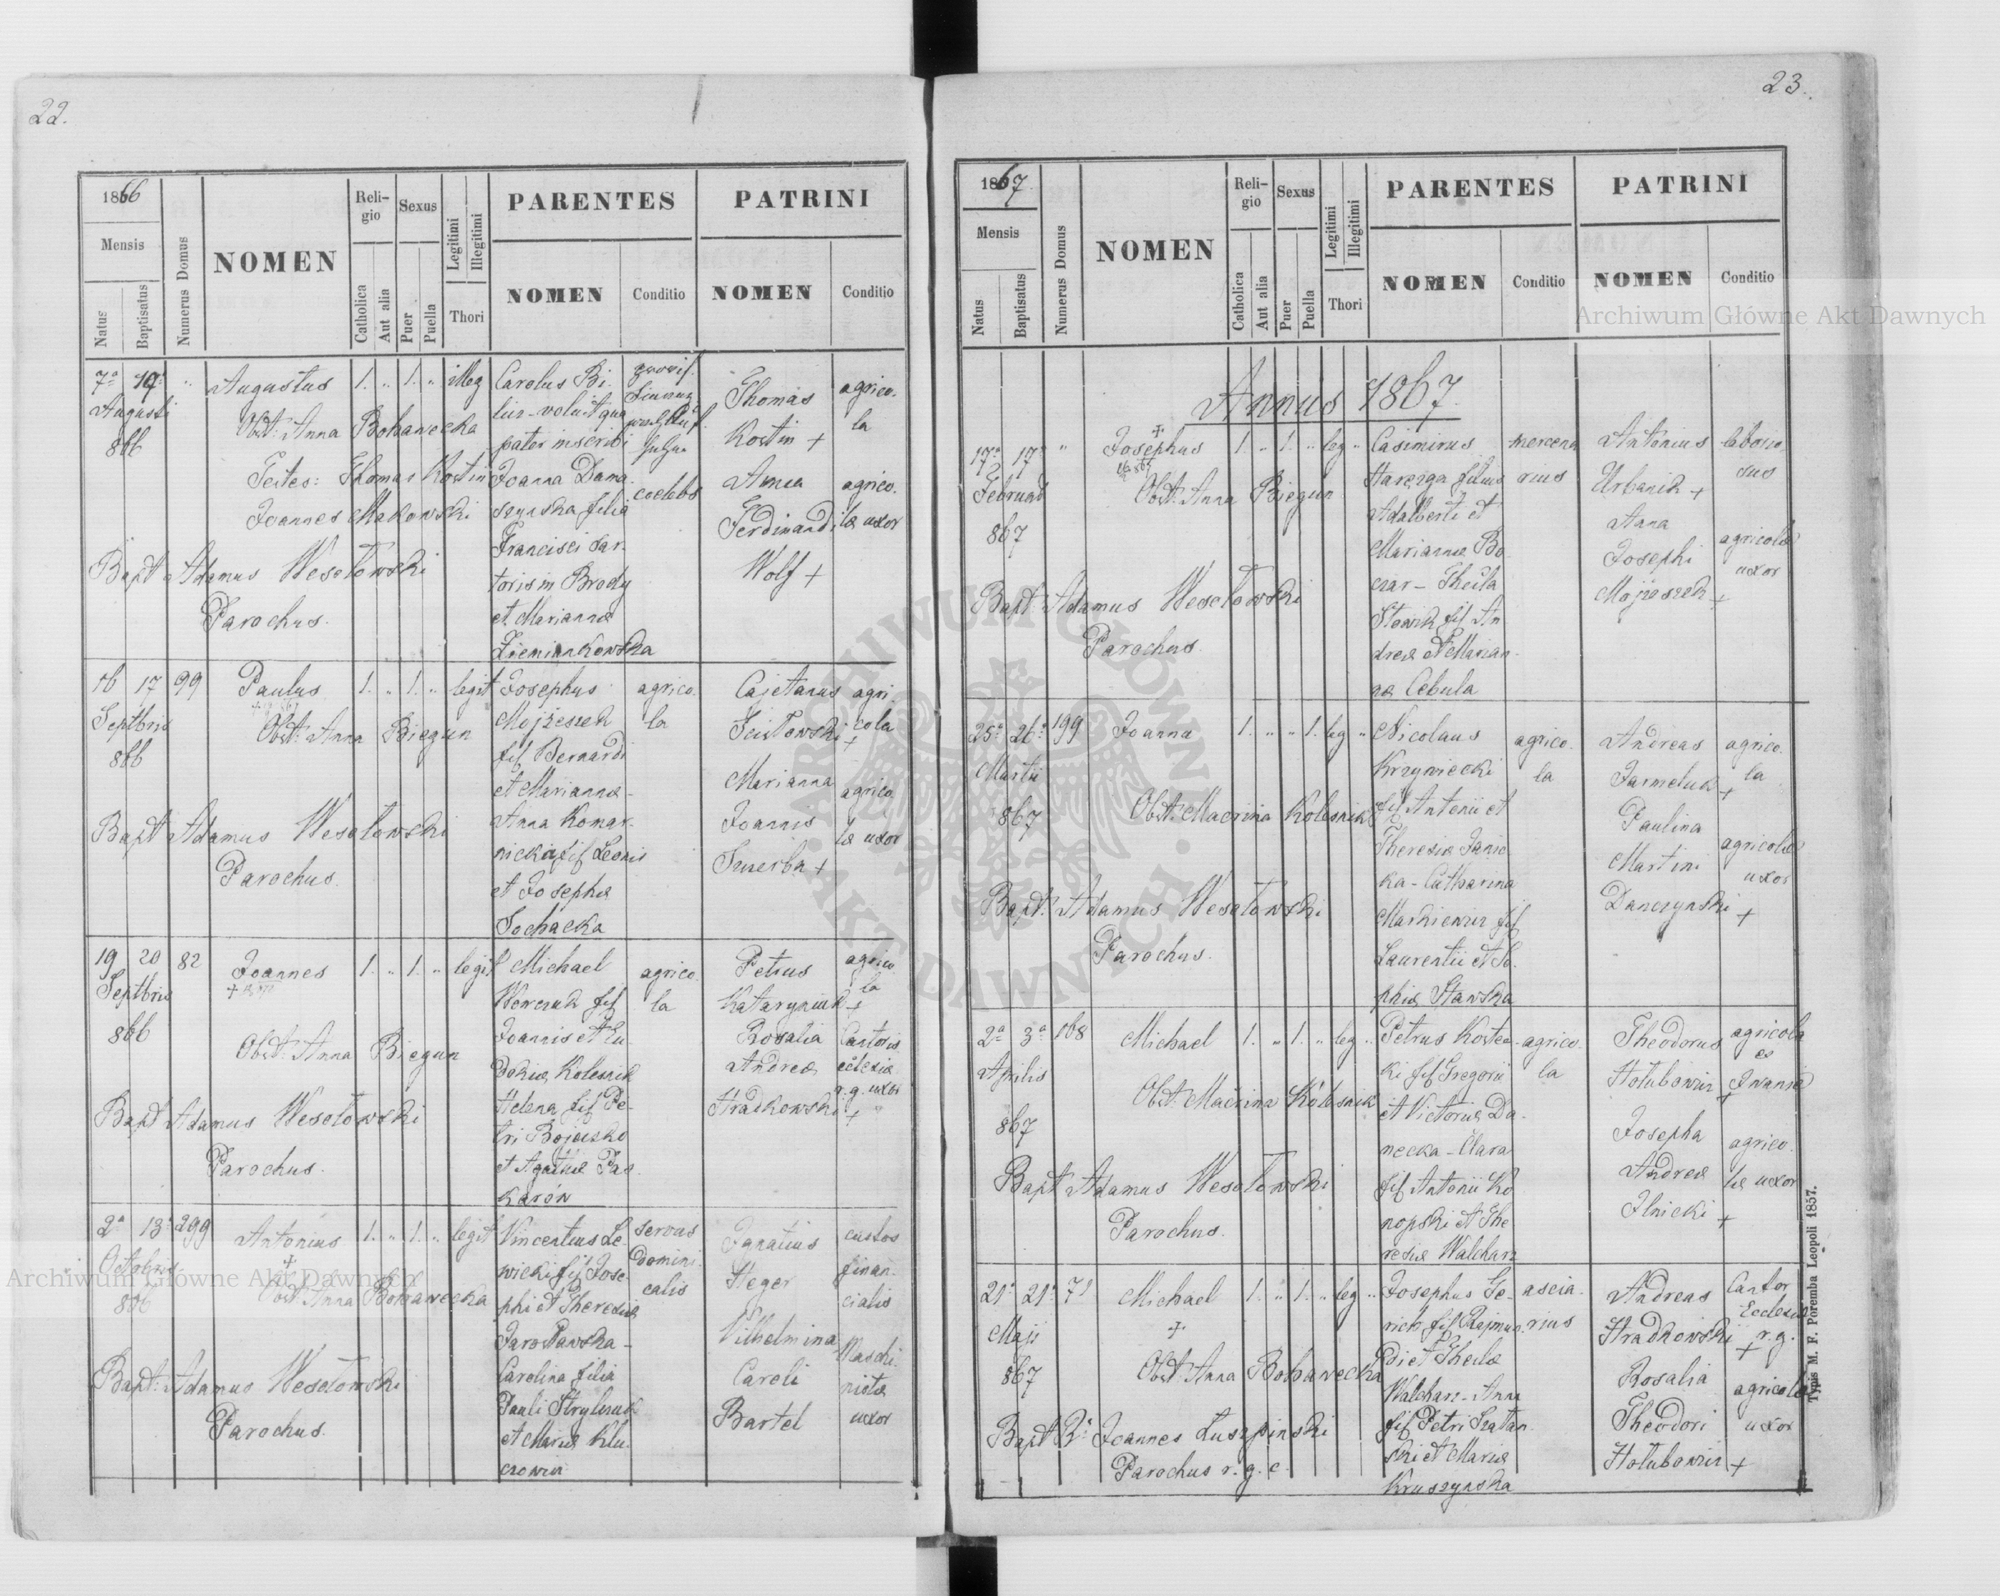 22.
1866
Mensis
Natus
Baptisatus
Numerus Domus
NOMEN
Religio
Catholica
Aut alia
Sexus
Puer
Puella
Legitimi
Illegitimi
Thori
PARENTES
NOMEN
Conditio
PATRINI
NOMEN
Conditio
7a 19a " Augustus 1. " 1. " illeg
Augusti
866
Obst: Anna Bohawecka
Testes: Thomas Kostin
Joannes Makowski
Bapt Adamus Wesołowski
Parochus.
Carolus Bi-
lius - voluit qua
pater inscribi
Joanna Dama-
szynska filia
Francisci sar-
toris in Brody
et Marianna
Ziemiankowska
coelebs
Thomas
Kostin +
Anna
Ferdinandi
Wolf +
agrico-
la
agrico-
læ uxor
16 17 99 Paulus 1. " 1. " legit
Septbris
866
Obst: Anna Biegun
Bapt Adamus Wesołowski
Parochus.
Josephus
Mojzeszek
fif Bernardi
et Marianna -
Anna Komar-
nicka fif Leonis
et Josepha
Sochacka
agrico-
la
Cajetanus
+
Marianna
Joannis
+
agri
cola
agrico
læ uxor
19 20 82 Joannes 1. " 1. " legit
Septbris
866
Obst: Anna Biegun
Bapt Adamus Wesołowski
Parochus.
Michael
fif
Joannis et Eu-
dokia Kolesnik
Helena fif Pe-
tri Bojousko
et Agatha Pas-
karón
agrico-
la
Petrus
Kataryniuk +
Rosalia
Andreæ
Hradkowski +
agrico
la
Cantoris
ecclesia
r. g. uxor
2a 13a 299 Antonius 1. " 1. " legit
Octobris
866
+
Obst: Anna Bohawecka
Bapt: Adamus Wesołowski
Parochus.
Vincentius Le-
wicki fif Jose-
phi et Theresia
Jarosławska -
Carolina filia
Pauli
et Maria Klu-
czowicz
servus
domini-
calis
Ignatius
Heger
Vilhelmina
Caroli
Bartel
custos
finan-
cialis
Maschi-
nistæ
uxor
23.
1867.
Mensis
Natus
Baptisatus
Numerus Domus
NOMEN
Religio
Catholica
Aut alia
Sexus
Puer
Puella
Legitimi
Illegitimi
Thori
PARENTES
NOMEN
Conditio
PATRINI
NOMEN
Conditio
Annus 1867.
17a 17a " Josephus 1. " 1. " leg "
Februar
867
Obst: Anna Biegun
Bapt: Adamus Wesołowski
Parochus.
Casimirus
filius
Adalberti et
Marianna Bo-
czar - Thecla
Słowik fif An
dreæ et Marian-
næ Cebula
mercena
rius
Antonius
Urbanik +
Anna
Josephi
Mojzeszek +
laborio
sus
agricolæ
uxor
25a 26a 199 Joanna 1. " " 1. leg "
Martii
867
Obst: Macrina Kolesnik
Bapt: Adamus Wesołowski
Parochus.
Nicolaus
Krzywiecki
fif Antonii et
Theresia Janic
ka - Catharina
Markiewicz fif
Laurentii et So-
phia Stawska
agrico-
la
Andreas
Jarmeluk +
Paulina
Martini
Danczynski +
agrico-
la
agricolæ
uxor
2a 3a 168 Michael 1. " 1. " leg "
Aprilis
867
Obst: Macrina Kolesnik
Bapt Adamus Wesołowski
Parochus.
Petrus Kostec-
ki fif Gregorii
et Victoria Da-
necka - Clara
fif Antonii Ko
nopski et The
resia Walchar
agrico-
la
Theodorus
Hołubowicz +
Josepha
Andreæ
Ilnicki +
agricola
ex
Iwanie
agrico-
læ uxor
21a 21a 71 Michael 1. " 1. " leg "
Maji
867
+
Obst: Anna Bohawecka
Bapt R: Joannes Łuszpinski
Parochus r. g. c.
Josephus Ge-
rich fif Rajmun-
di et Thecla
Walchar - Anna
fif Petri Szatan-
ski et Maria
Kruszynska
ascia-
rius
Andreas
Hradkowski +
Rosalia
Theodori
Hołubowicz +
Cantor
Ecclesiæ
r. g.
agricolæ
uxor
Typis M. F. Poremba Leopoli 1857.
Archiwum Główne Akt Dawnych
Archiwum Główne Akt Dawnych
ARCHIWUM GŁÓWNE AKT DAWNYCH